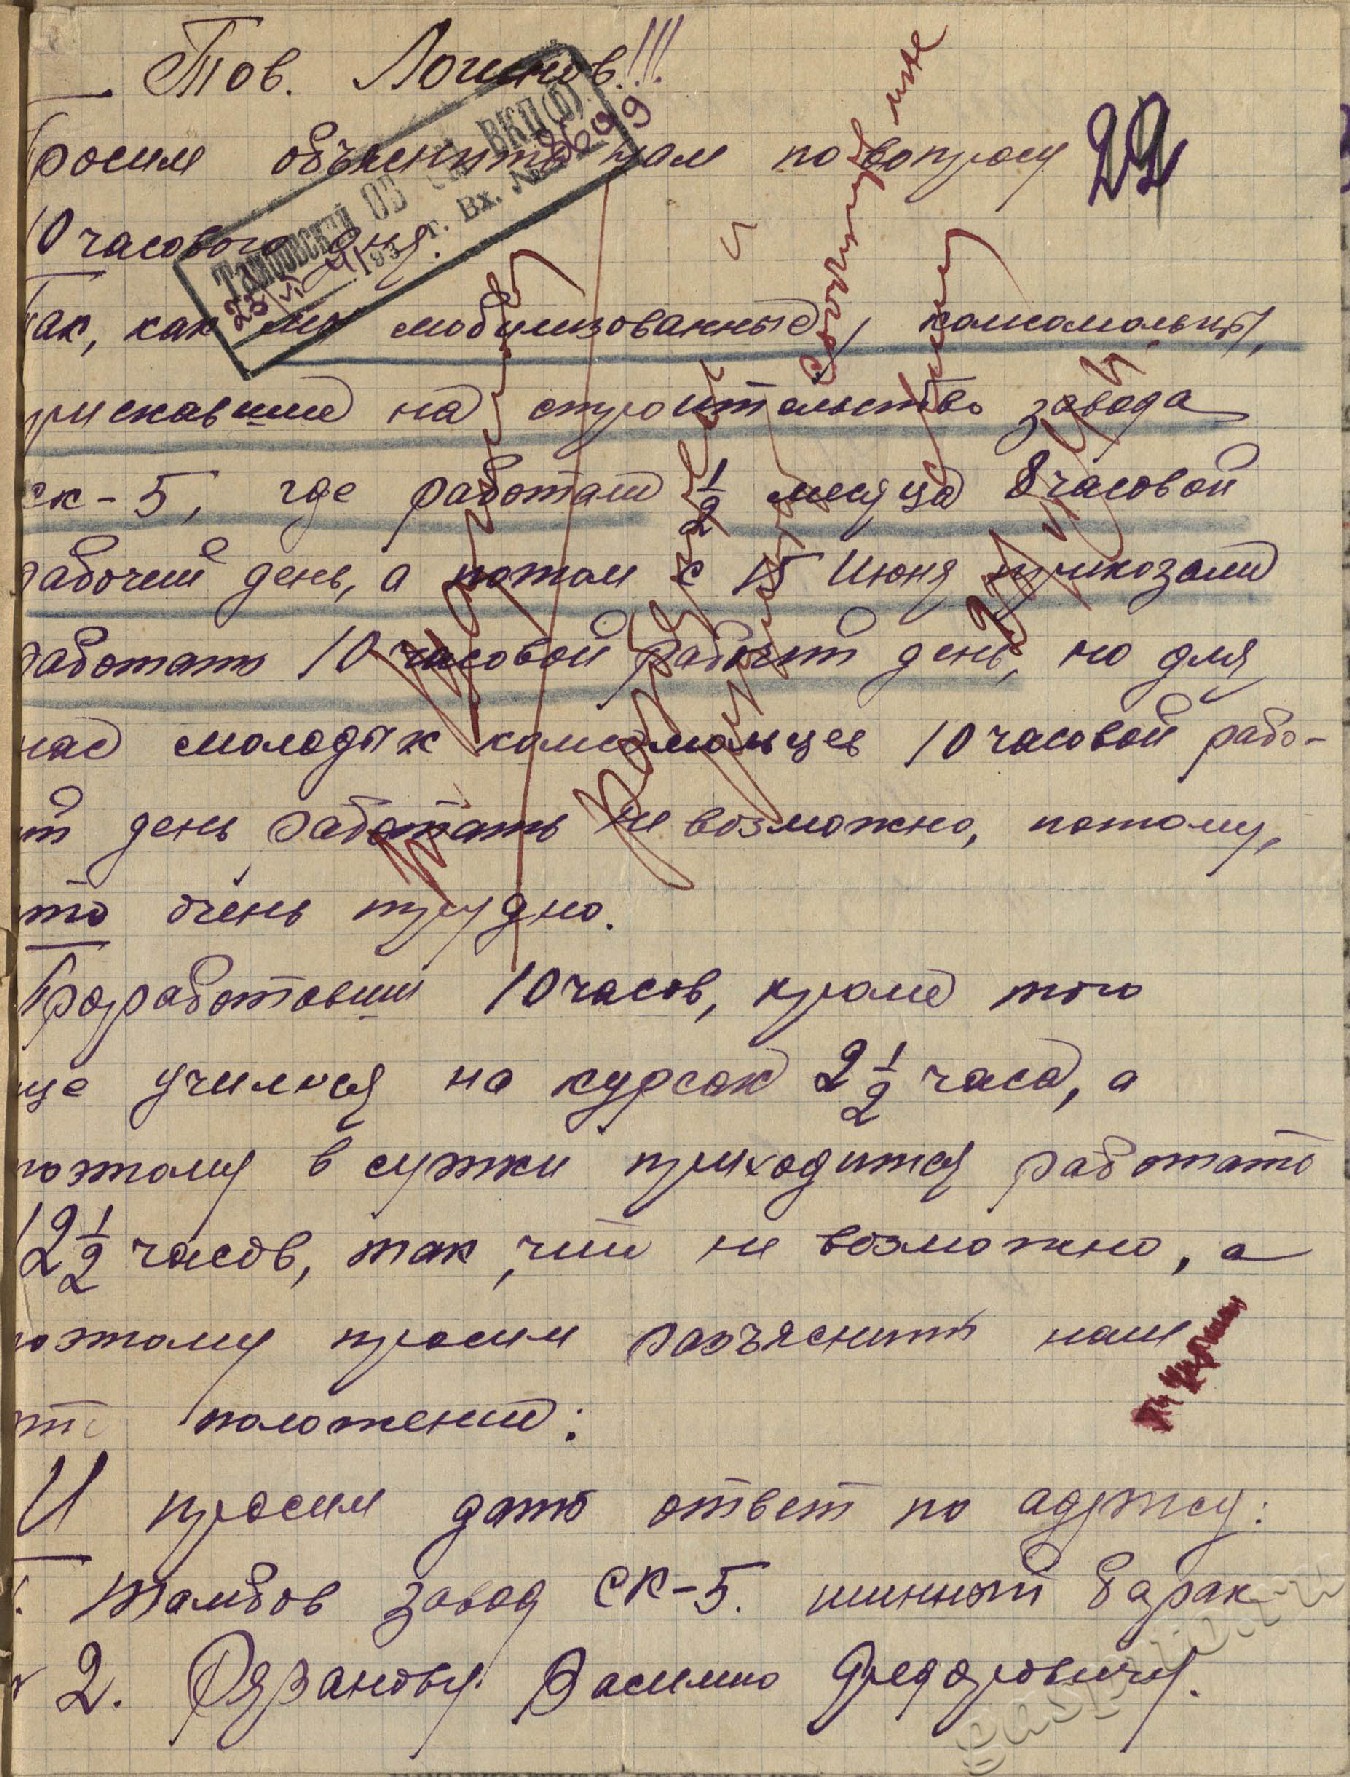 Тов. Логинов!!!
Просим объяснить нам по вопросу
22
10 часового дня.
Тамбовский ВКП(б)
193 г. Вх. №
8699
23
Так, как мы мобилизованные, комсомольцы,
приехавшие на строительство завода
ск-5, где работали 1/2 месяца 8 часовой
рабочий день, а потом с 15 Июня приказали
работать 10 часовой рабочий день, но для
нас молодых комсомольцев 10 часовой рабо-
чий день работать не возможно, потому,
что очень трудно.
Проработавши 10 часов, кроме того
еще учимся на курсах 2 1/2 часа, а
поэтому в сутки приходится работать
12 1/2 часов, так, что не возможно, а
поэтому просим разъяснить нам
это положение:
И просим дать ответ по адресу:
г. Тамбов завод СК-5. шинный барак
№ 2. Рязанову Василию Федоровичу.
и сообщите мне
gaspito.ru